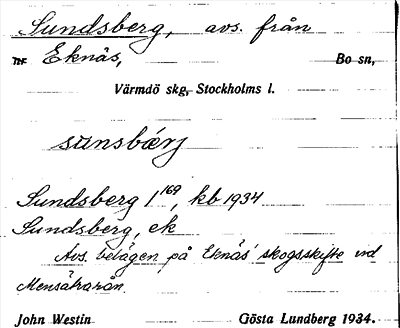 Sundsberg, avs. från
Eknäs, Bo sn,
Värmdö skg, Stockholms l.
sunsbærj
Sundsberg 1¹⁶⁹, kb 1934
Sundsberg, ek
Avs. belägen på Eknäs' skogsskifte vid
Mensättraån.
John Westin Gösta Lundberg 1934.